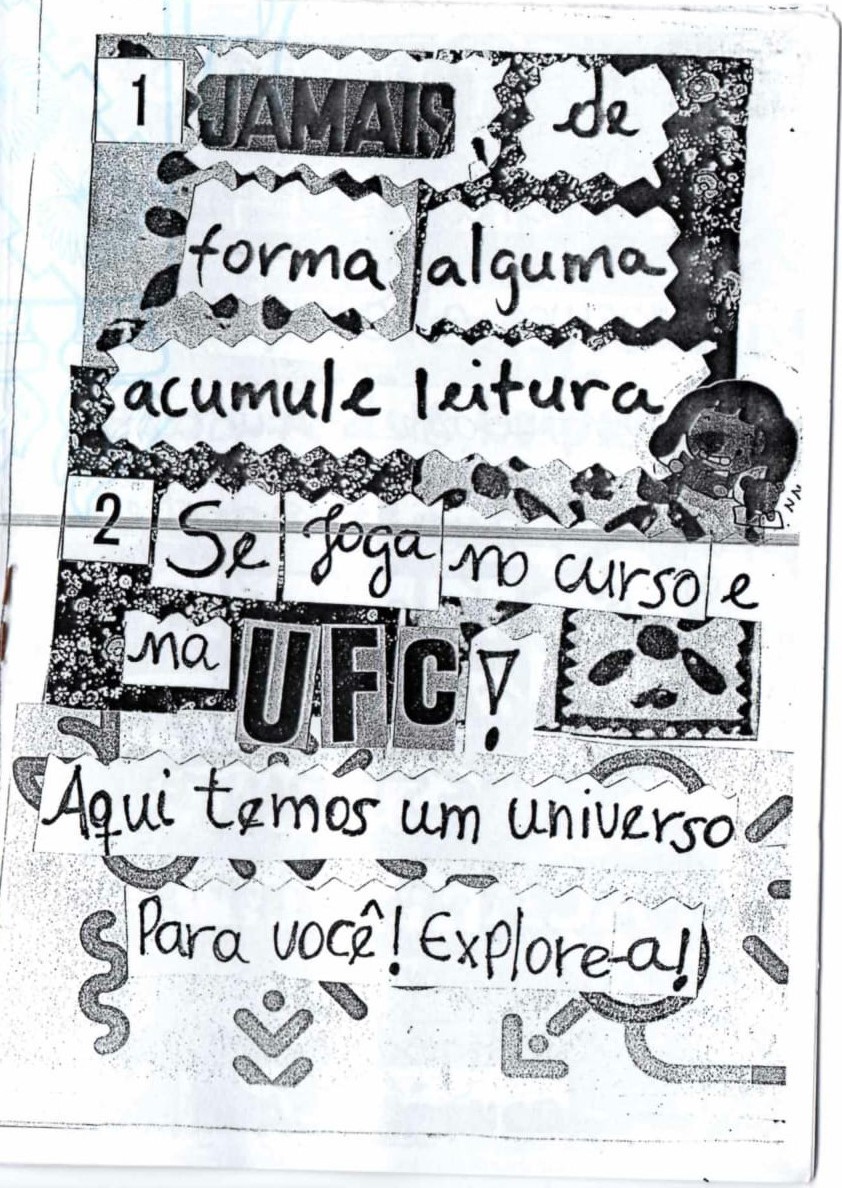 1 JAMAIS, de
forma alguma
acumule leitura
2 Se joga no curso e
na UFC!
Aqui temos um universo
Para você! Explore-a!